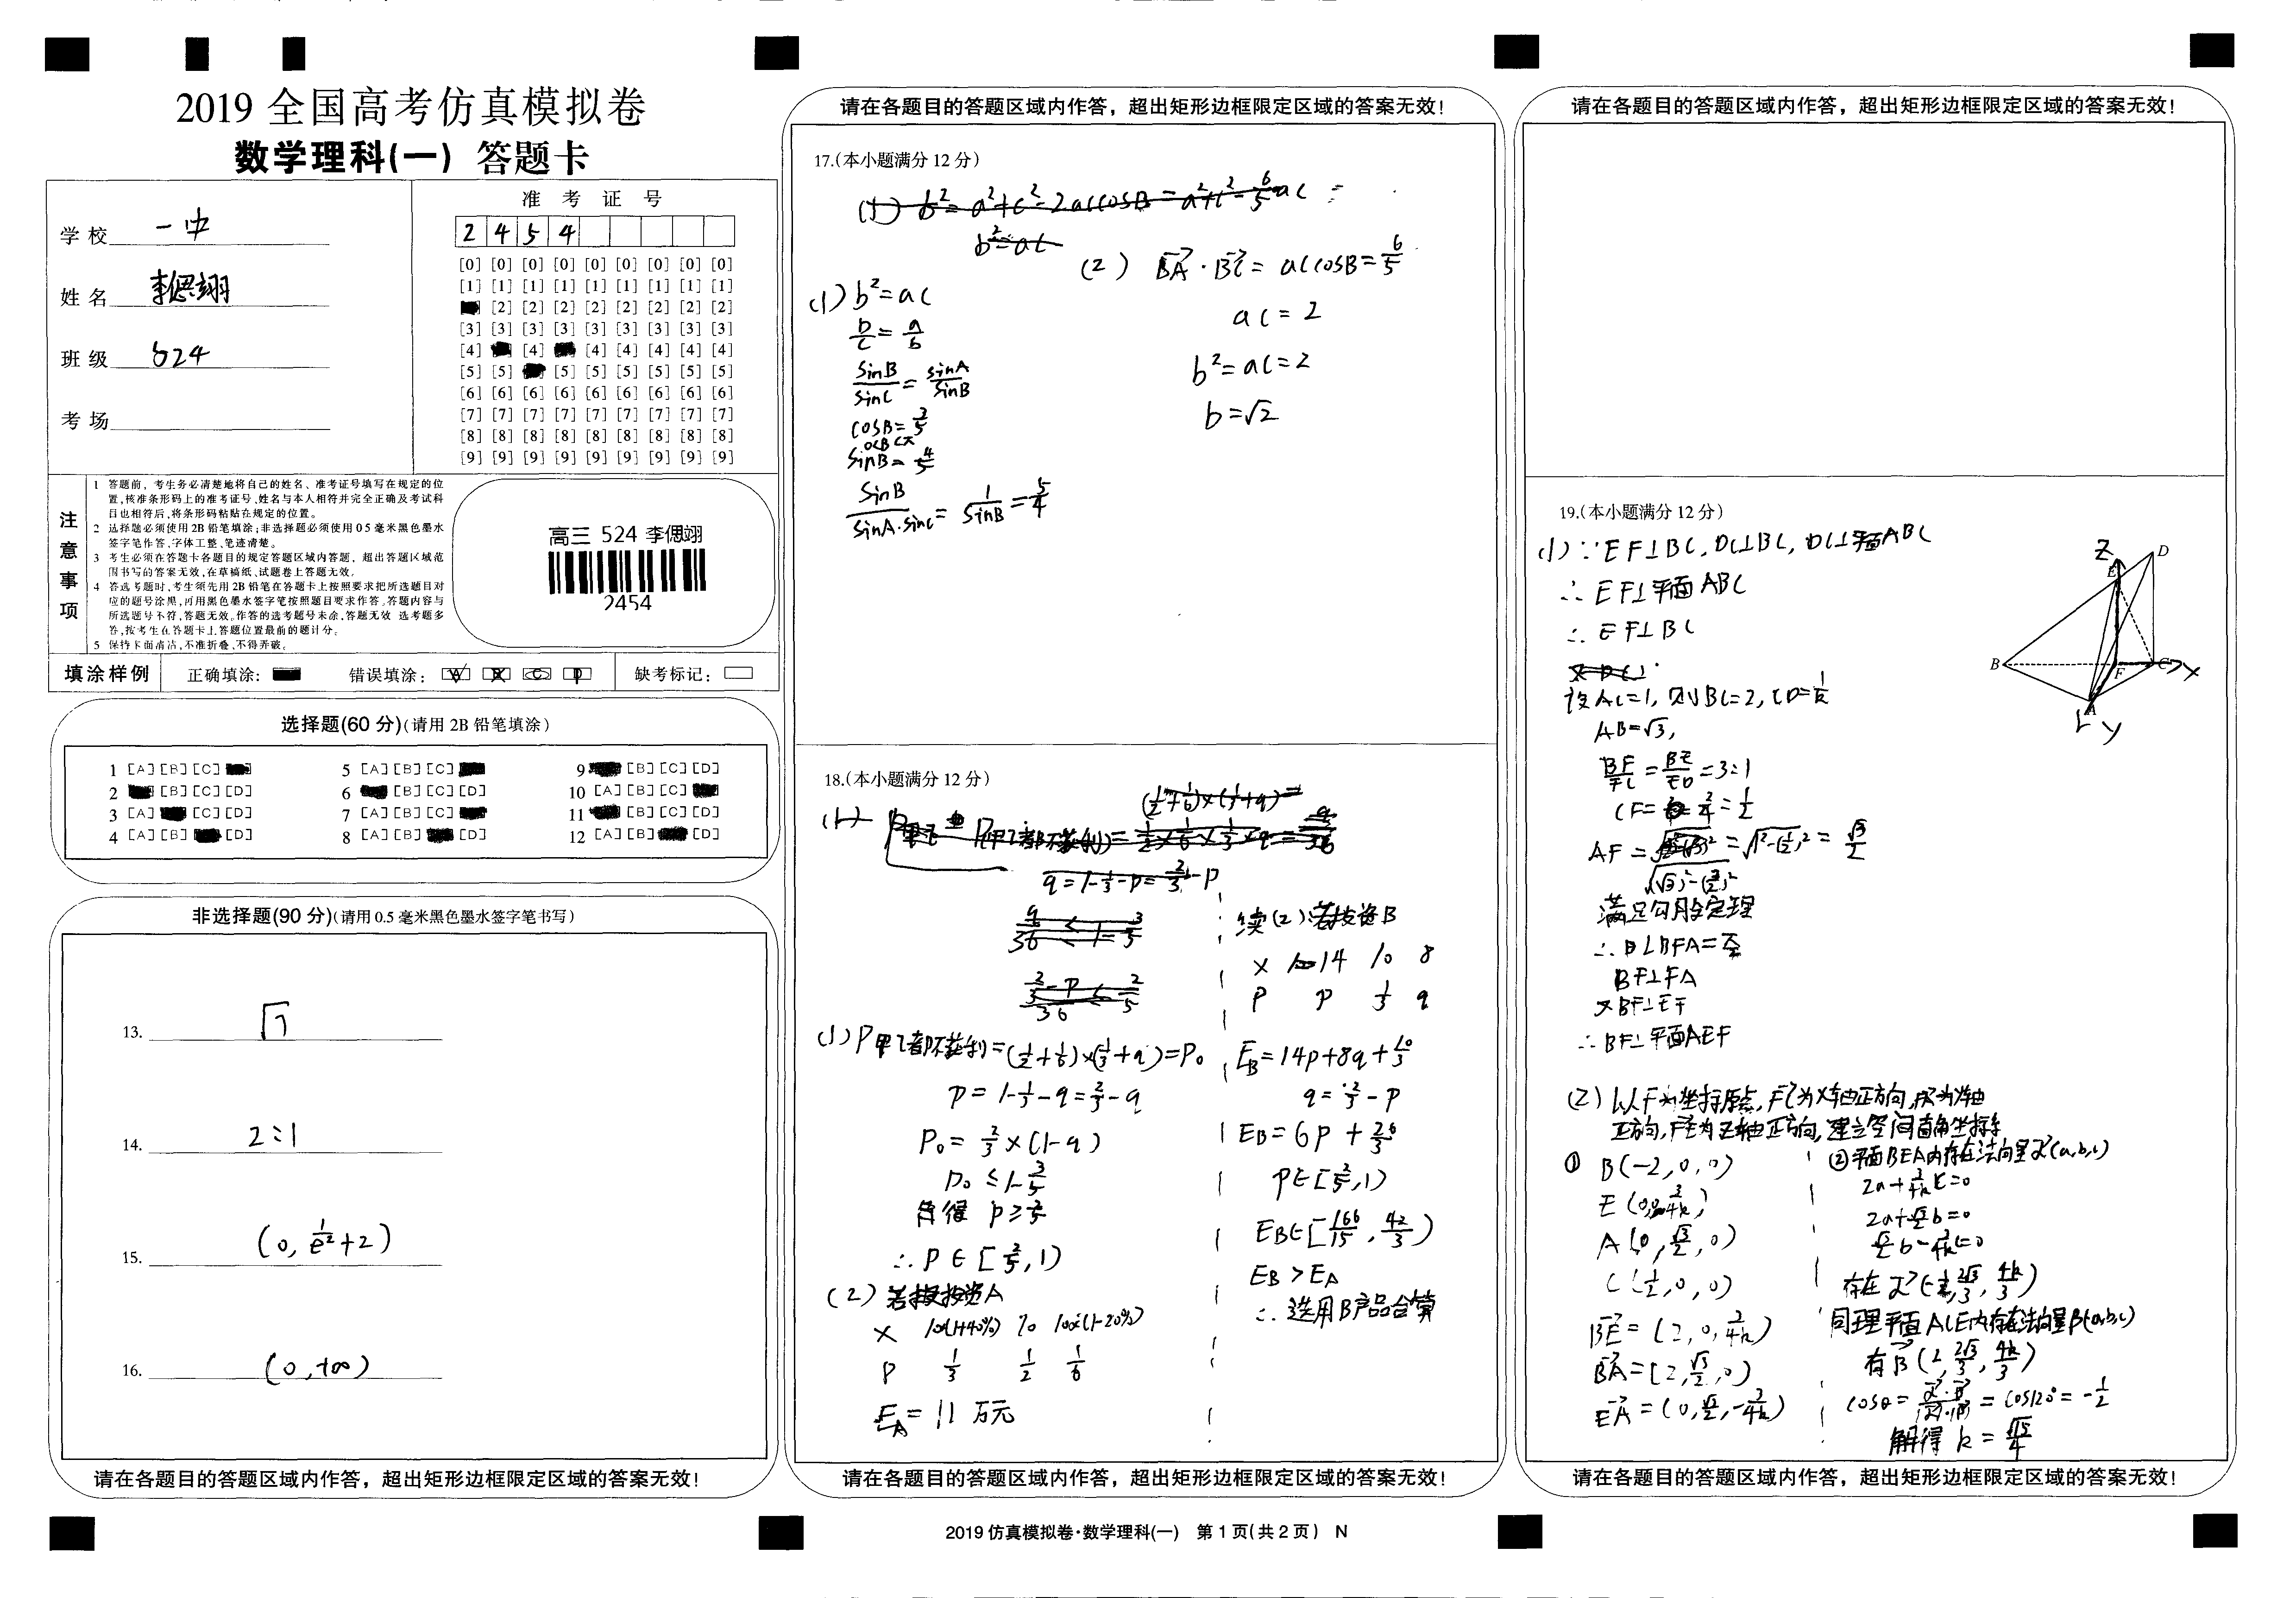 2019 全国高考仿真模拟卷
数学理科(一) 答题卡
学校 一中
姓名 李偲翊
班级 524
考场
准考证号
2 4 5 4
[0] [0] [0] [0] [0] [0] [0] [0] [0]
[1] [1] [1] [1] [1] [1] [1] [1] [1]
[2] [2] [2] [2] [2] [2] [2] [2]
[3] [3] [3] [3] [3] [3] [3] [3] [3]
[4] [4] [4] [4] [4] [4] [4]
[5] [5] [5] [5] [5] [5] [5] [5]
[6] [6] [6] [6] [6] [6] [6] [6] [6]
[7] [7] [7] [7] [7] [7] [7] [7] [7]
[8] [8] [8] [8] [8] [8] [8] [8] [8]
[9] [9] [9] [9] [9] [9] [9] [9] [9]
注意事项
1 答题前，考生务必清楚地将自己的姓名、准考证号填写在规定的位
置,核准条形码上的准考证号,姓名与本人相符并完全正确及考试科
目也相符后,将条形码粘贴在规定的位置。
2 选择题必须使用2B铅笔填涂;非选择题必须使用05毫米黑色墨水
签字笔作答,字体工整、笔迹清楚。
3 考生必须在答题卡各题目的规定答题区域内答题，超出答题区域范
围书写的答案无效,在草稿纸、试题卷上答题无效。
4 答选考题时,考生须先用2B铅笔在答题卡上按照要求把所选题目对
应的题号涂黑,再用黑色墨水签字笔按照题目要求作答,答题内容与
所选题号不符,答题无效。作答的选考题号未涂,答题无效 选考题多
答,按考生在答题卡上答题位置最前的题计分。
5 保持卡面清洁,不准折叠、不得弄破。
高三 524 李偲翊
2454
填涂样例 正确填涂： 错误填涂： 缺考标记：
选择题(60 分)(请用 2B 铅笔填涂)
1 [A] [B] [C] 5 [A] [B] [C] 9 [B] [C] [D]
2 [B] [C] [D] 6 [B] [C] [D] 10 [A] [B] [C]
3 [A] [C] [D] 7 [A] [B] [C] 11 [B] [C] [D]
4 [A] [B] [D] 8 [A] [B] [D] 12 [A] [B] [D]
非选择题(90 分)(请用 0.5 毫米黑色墨水签字笔书写)
13. √7
14. 2:1
15. (0, 1/e²+2)
16. (0,+∞)
请在各题目的答题区域内作答，超出矩形边框限定区域的答案无效！
请在各题目的答题区域内作答，超出矩形边框限定区域的答案无效！
17.(本小题满分 12 分)
(1) b²=a²+c²-2accosB=a²+c²-6/5ac =
b²=ac
(1) b²=ac
b/c=a/b
sinB/sinC=sinA/sinB
cosB=3/5
0<B<π
sinB=4/5
sinB/sinA·sinC=1/sinB=5/4
(2) BA·BC=accosB=6/5
ac=2
b²=ac=2
b=√2
18.(本小题满分 12 分)
(1/2+1/6)×(1/3+q)=
q=1-1/3-p=2/3-p
(1) P甲乙都不获利=(1/2+1/6)×(1/3+q)=P₀
p=1-1/3-q=2/3-q
P₀=2/3×(1-q)
P₀≤1-3/5
解得 p≥2/5
∴P∈[2/5,1)
(2) 若投资A
X 10×(1+40%) 10 10×(1-20%)
P 1/3 1/2 1/6
E_A=11 万元
续(2):若投资B
X 14 10 8
P p 1/3 q
E_B=14p+8q+10/3
q=2/3-p
E_B=6p+26/3
p∈[2/5,1)
E_B∈[166/15,42/3)
E_B>E_A
∴选用B产品合算
请在各题目的答题区域内作答，超出矩形边框限定区域的答案无效！
2019 仿真模拟卷·数学理科(一) 第 1 页(共 2 页) N
请在各题目的答题区域内作答，超出矩形边框限定区域的答案无效！
19.(本小题满分 12 分)
(1)∵EF⊥BC,DC⊥BC,DC⊥平面ABC
∴EF⊥平面ABC
∴EF⊥BC
设AC=1,则BC=2,CD=1/k
AB=√3,
BF/FC=BE/ED=3:1
CF=2/4=1/2
AF=√1²-(1/2)²=√3/2
√(√3)²-(3/2)²
满足勾股定理
∴∠BFA=π/2
BF⊥FA
又BF⊥EF
∴BF⊥平面AEF
Z
E
D
B
F
C
X
A
y
(2)以F为坐标原点,FC为X轴正方向,FA为y轴
正方向,FE为Z轴正方向,建立空间直角坐标系
① B(-2,0,0)
E(0,0,3/4k)
A(0,√3/2,0)
C(1/2,0,0)
BE=(2,0,3/4k)
BA=(2,√3/2,0)
EA=(0,√3/2,-3/4k)
②平面BEA内存在法向量α(a,b,c)
2a+3/4k c=0
2a+√3/2 b=0
√3/2 b-3/4k c=0
存在α(-1/2,2√3/3,4k/3)
同理平面ACE内存在法向量β(a,b,c)
有β(2,2√3/3,4k/3)
cosθ=α·β/|α|·|β|=cos120°=-1/2
解得 k=√15/4
请在各题目的答题区域内作答，超出矩形边框限定区域的答案无效！